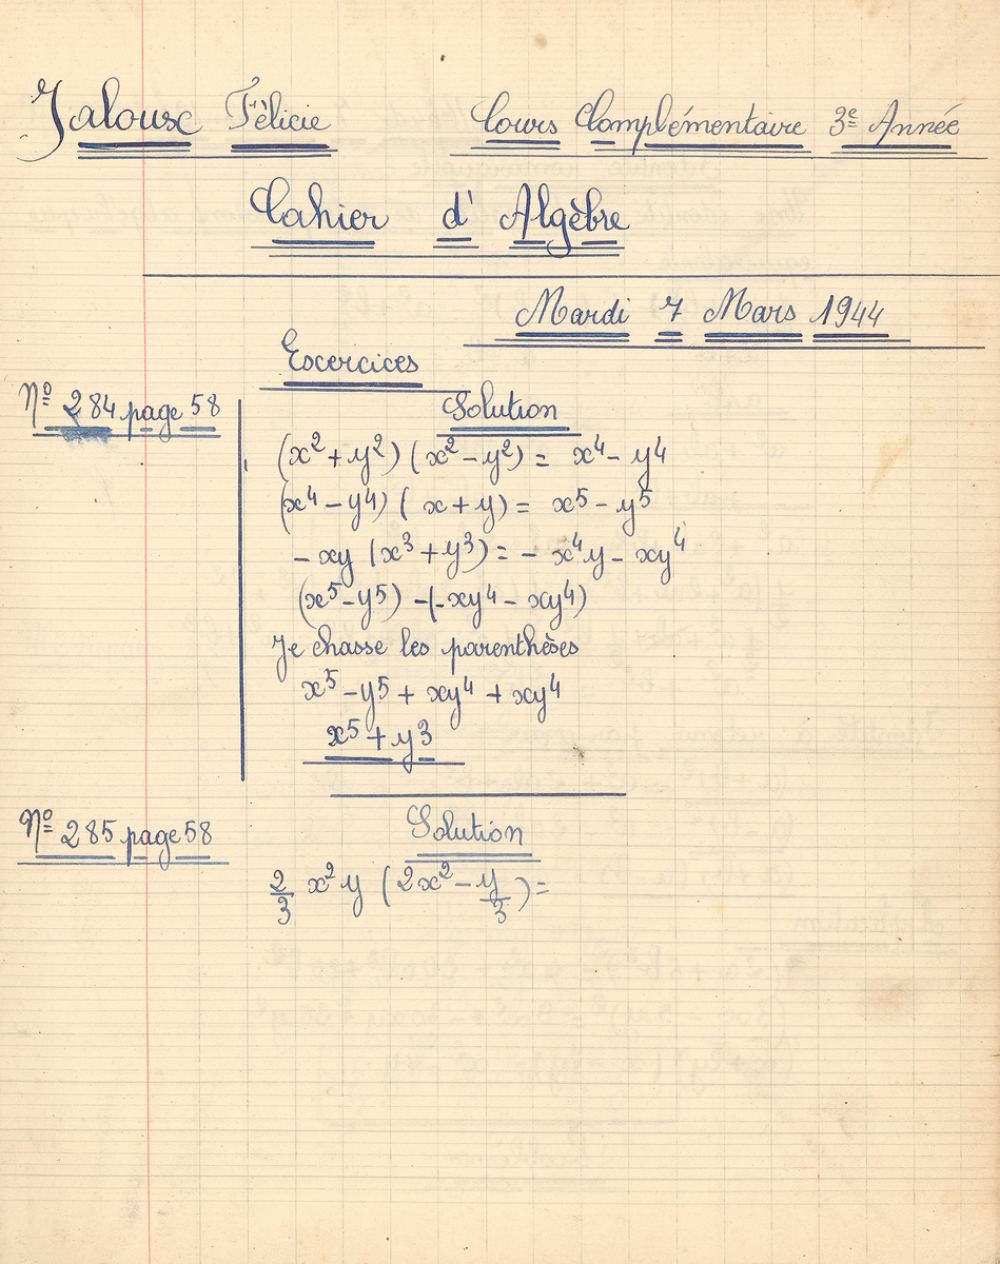 Jaloux Félicie Cours Complémentaire 3e Année
Cahier d'Algèbre
Mardi 7 Mars 1944
Exercices
No 284 page 58
Solution
(x² + y²) (x² - y²) = x⁴ - y⁴
(x⁴ - y⁴) ( x + y) = x⁵ - y⁵
- xy (x³ + y³) = - x⁴y - xy⁴
(x⁵ - y⁵) - (-xy⁴ - xy⁴)
Je chasse les parenthèses
x⁵ - y⁵ + xy⁴ + xy⁴
x⁵ + y³
No 285 page 58
Solution
2/3 x² y (2x² - y/3) =